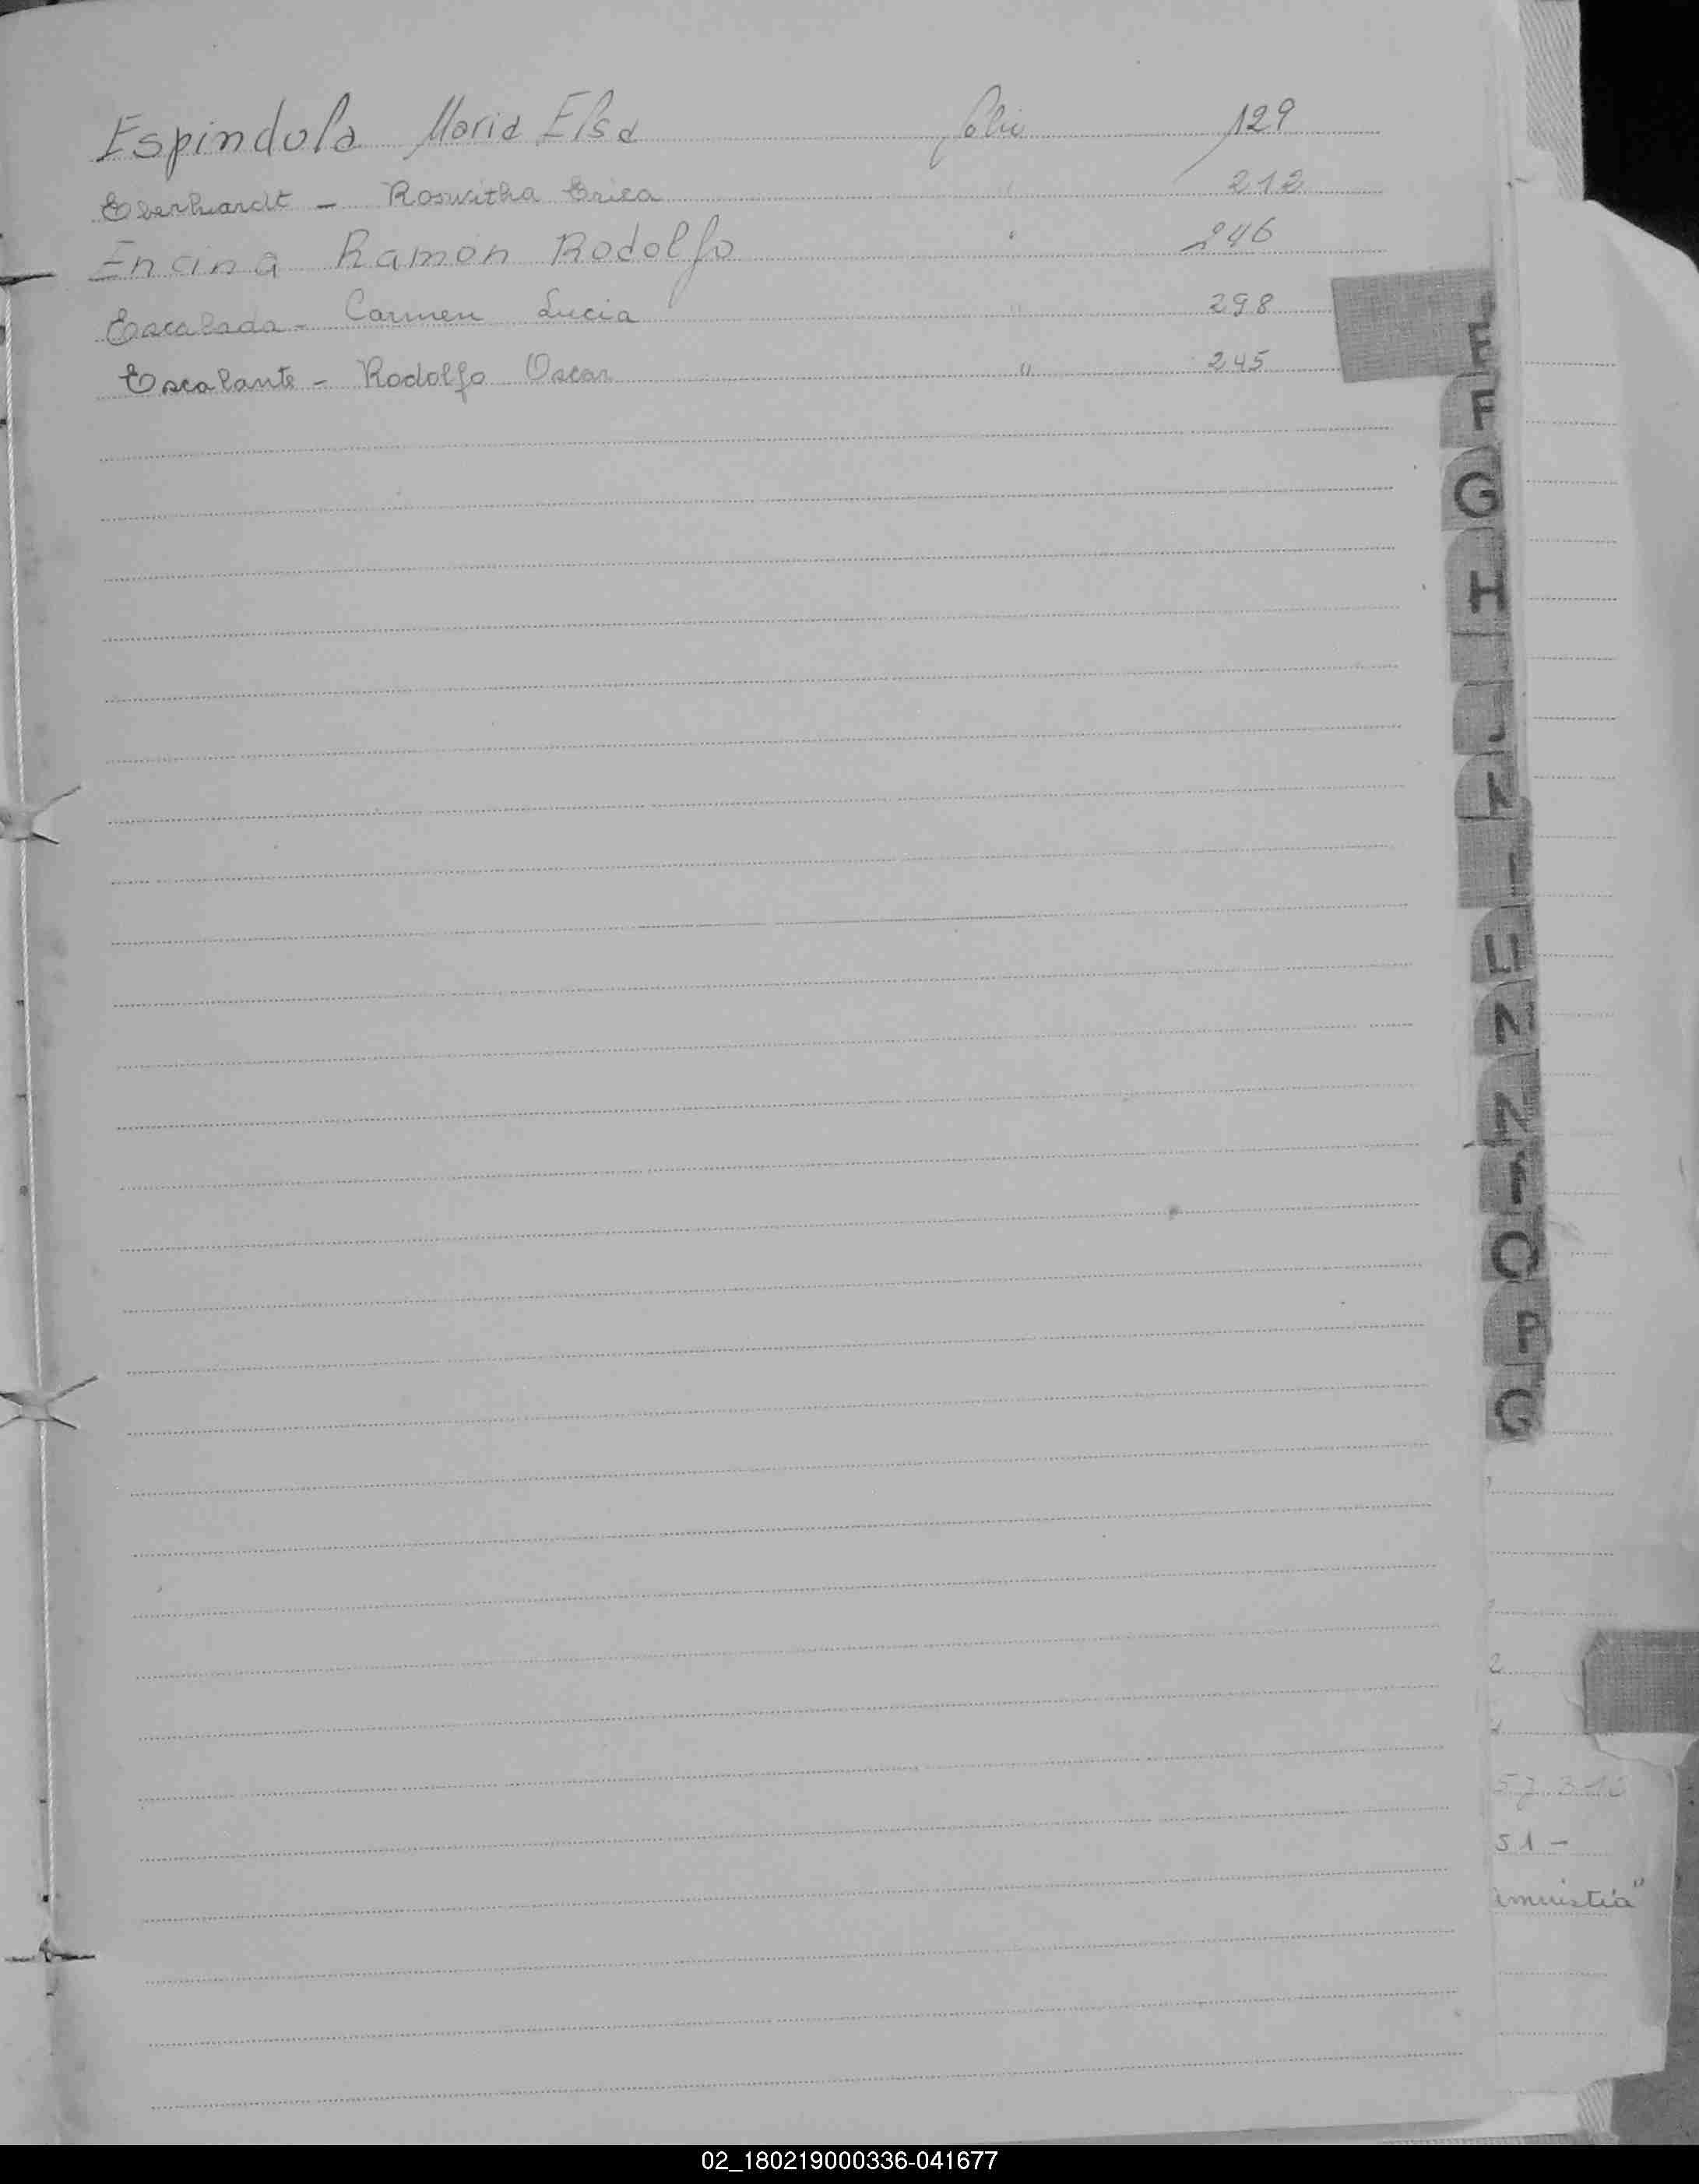 Espindola Maria Elsa folio 129
Eberhardt - Roswitha Erica " 212
Encina Ramon Rodolfo " 246
Escalada - Carmen Lucia " 298
Escalante - Rodolfo Oscar " 245
E
F
G
H
J
K
N
N
O
P
Q
2
51 -
02_180219000336-041677